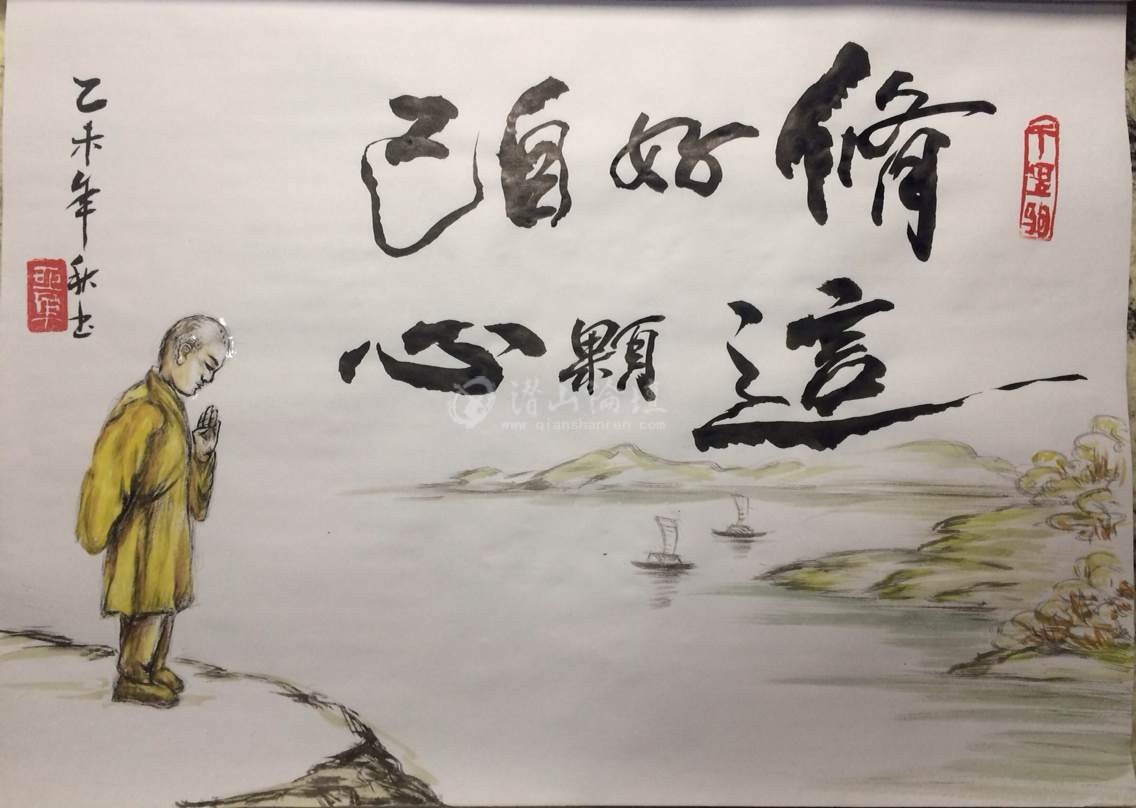 脩好自己
這顆心
乙未年秋书
潜山论坛
www.qianshanren.com